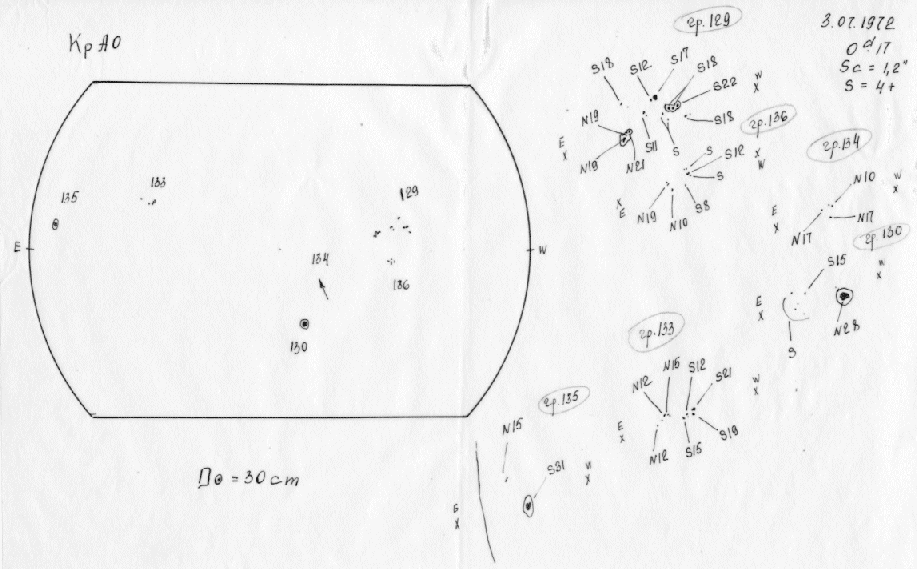 КрАО
3.07.1972
Sc = 1,2"
S = 4+
E
W
135
133
129
134
136
130
D⊙ = 30 cm
гр.129
S18
S12
S17
S18
S22
W
X
N19
S18
E
X
N19
N21
S11
S
гр.136
S
S12
X
W
S
X
E
N19
N10
S8
гр.134
N10
W
X
E
X
N17
N17
гр.130
S15
W
X
E
X
S
N28
гр.133
N12
N15
S12
S21
W
X
E
X
N12
S15
S19
гр.135
N15
S31
W
X
E
X